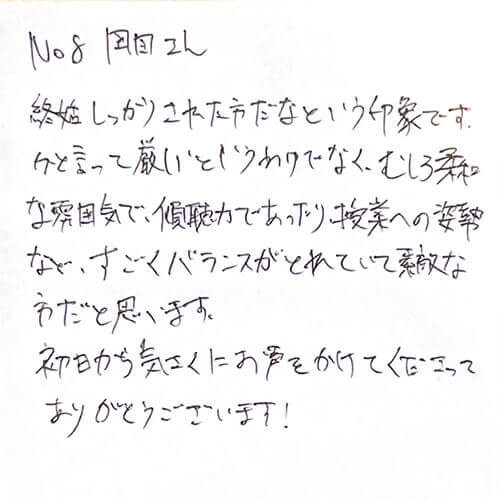 No8 岡田さん
終始しっかりされた方だなという印象です.
かと言って厳しいというわけでなく、むしろ柔和
な雰囲気で、傾聴力であったり、授業への姿勢
など、すごくバランスがとれていて素敵な
方だと思います。
初日から気さくにお声をかけてくださって
ありがとうございます!